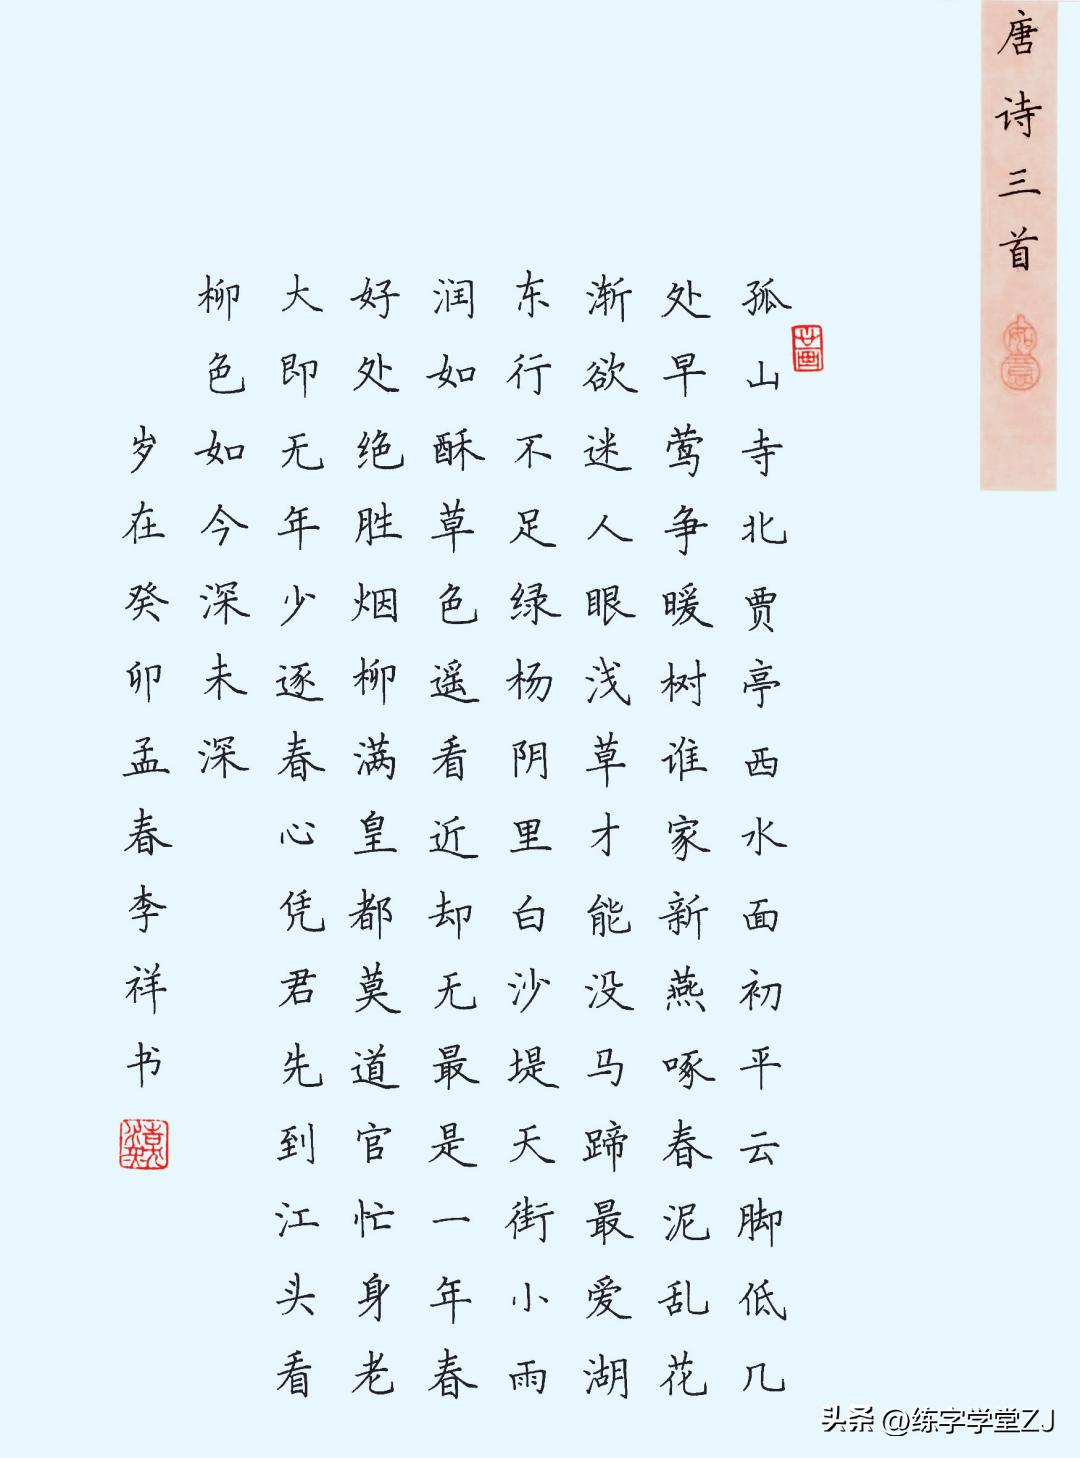 唐诗三首
如意
孤山寺北贾亭西水面初平云脚低几
处早莺争暖树谁家新燕啄春泥乱花
渐欲迷人眼浅草才能没马蹄最爱湖
东行不足绿杨阴里白沙堤天街小雨
润如酥草色遥看近却无最是一年春
好处绝胜烟柳满皇都莫道官忙身老
大即无年少逐春心凭君先到江头看
柳色如今深未深
岁在癸卯孟春李祥书
头条 @练字学堂ZJ